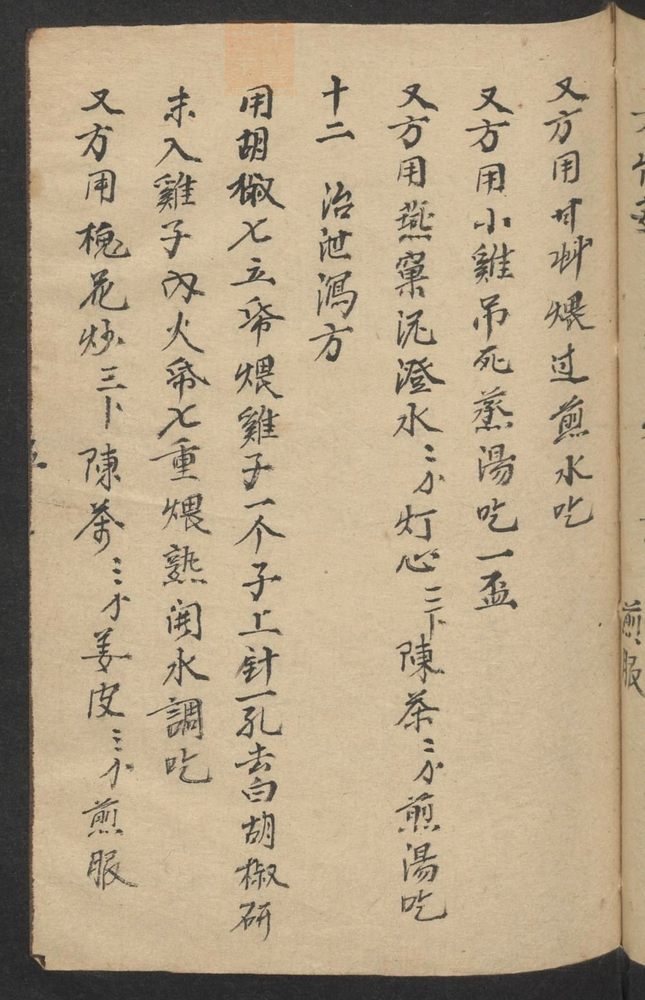 又方用甘艸煨过煎水吃
又方用小雞吊死蒸湯吃一盃
又方用燕窠泥澄水三分灯心三卜陳茶三分煎湯吃
十二 治泄瀉方
用胡椒七立帋煨雞子一个子上針一孔去白胡椒研
末入雞子內火帋七重煨熟開水調吃
又方用槐花炒三卜陳茶三分姜皮三分煎服
煎服